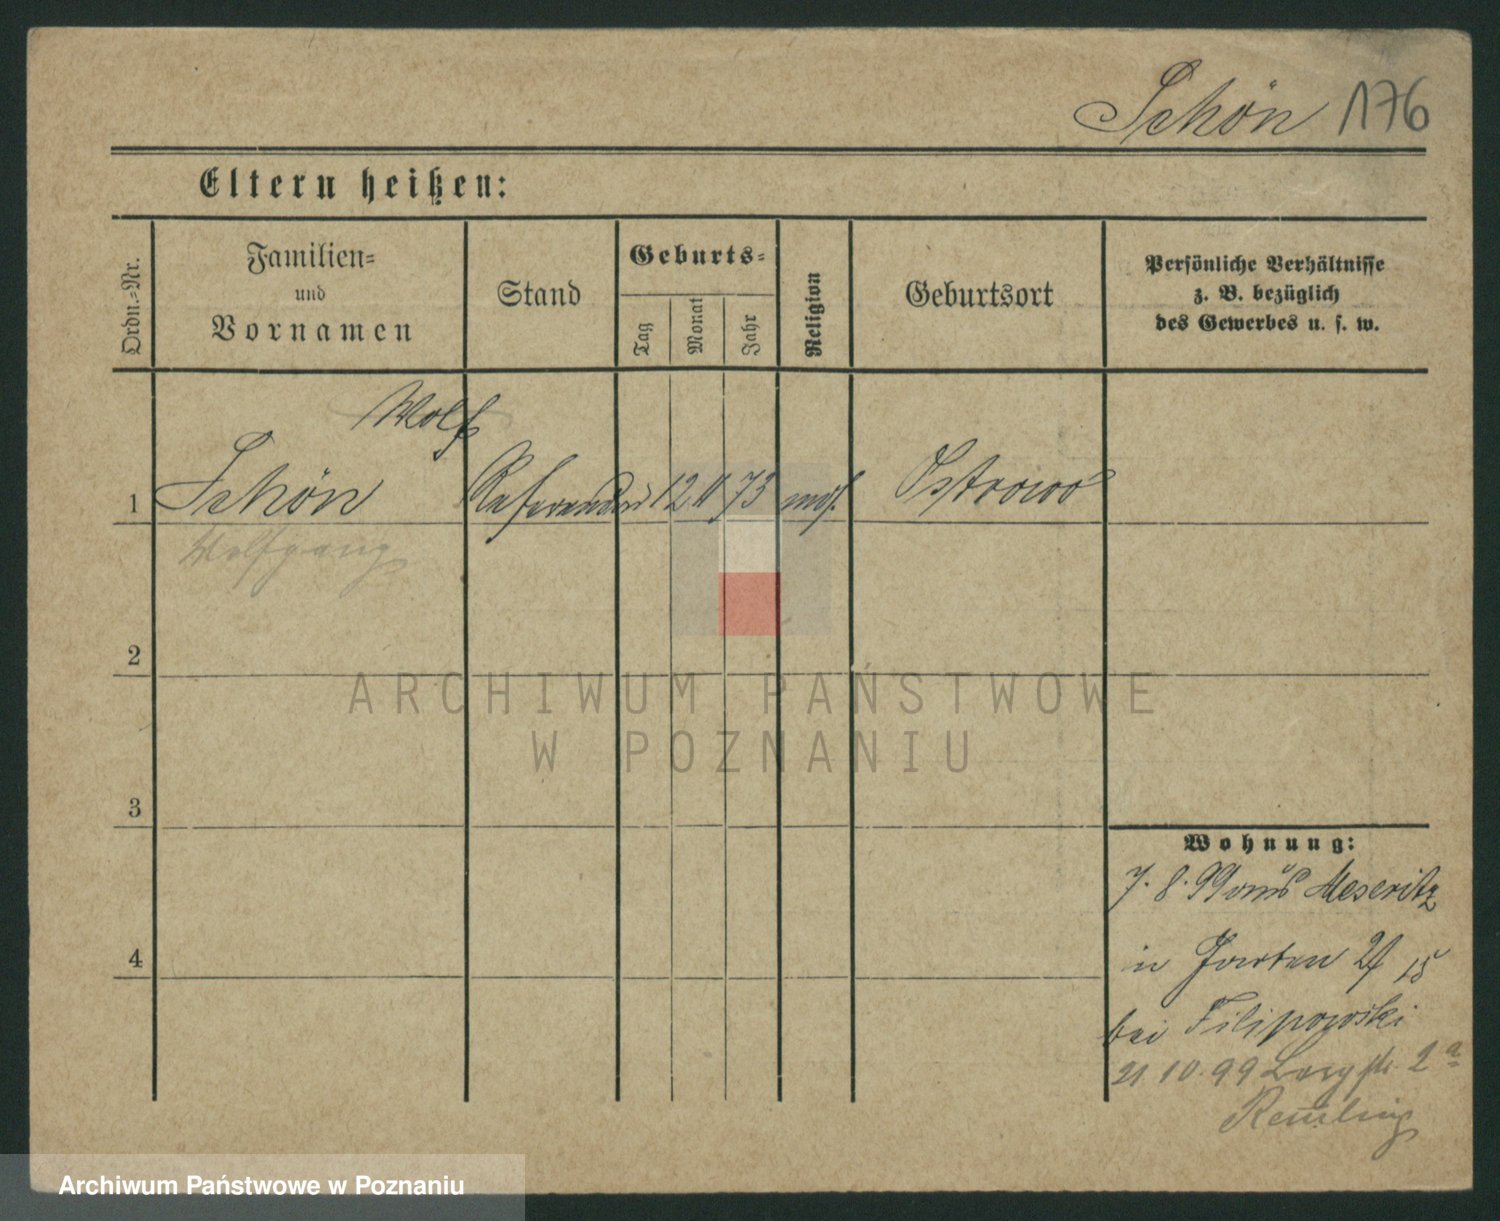 Schön 176
Eltern heißen:
Ordn.-Nr.
Familien-
und
Vornamen
Stand
Geburts-
Tag
Monat
Jahr
Religion
Geburtsort
Persönliche Verhältnisse
z. B. bezüglich
des Gewerbes u. s. w.
Wolf
1 Schön Referendar 12 11 73 mos. Ostrowo
Wolfgang
2
3
4
Wohnung:
7. 8. 99 aus Meseritz
in 15
bei Filipowski
21 10 99 2a
ARCHIWUM PAŃSTWOWE
W POZNANIU
Archiwum Państwowe w Poznaniu